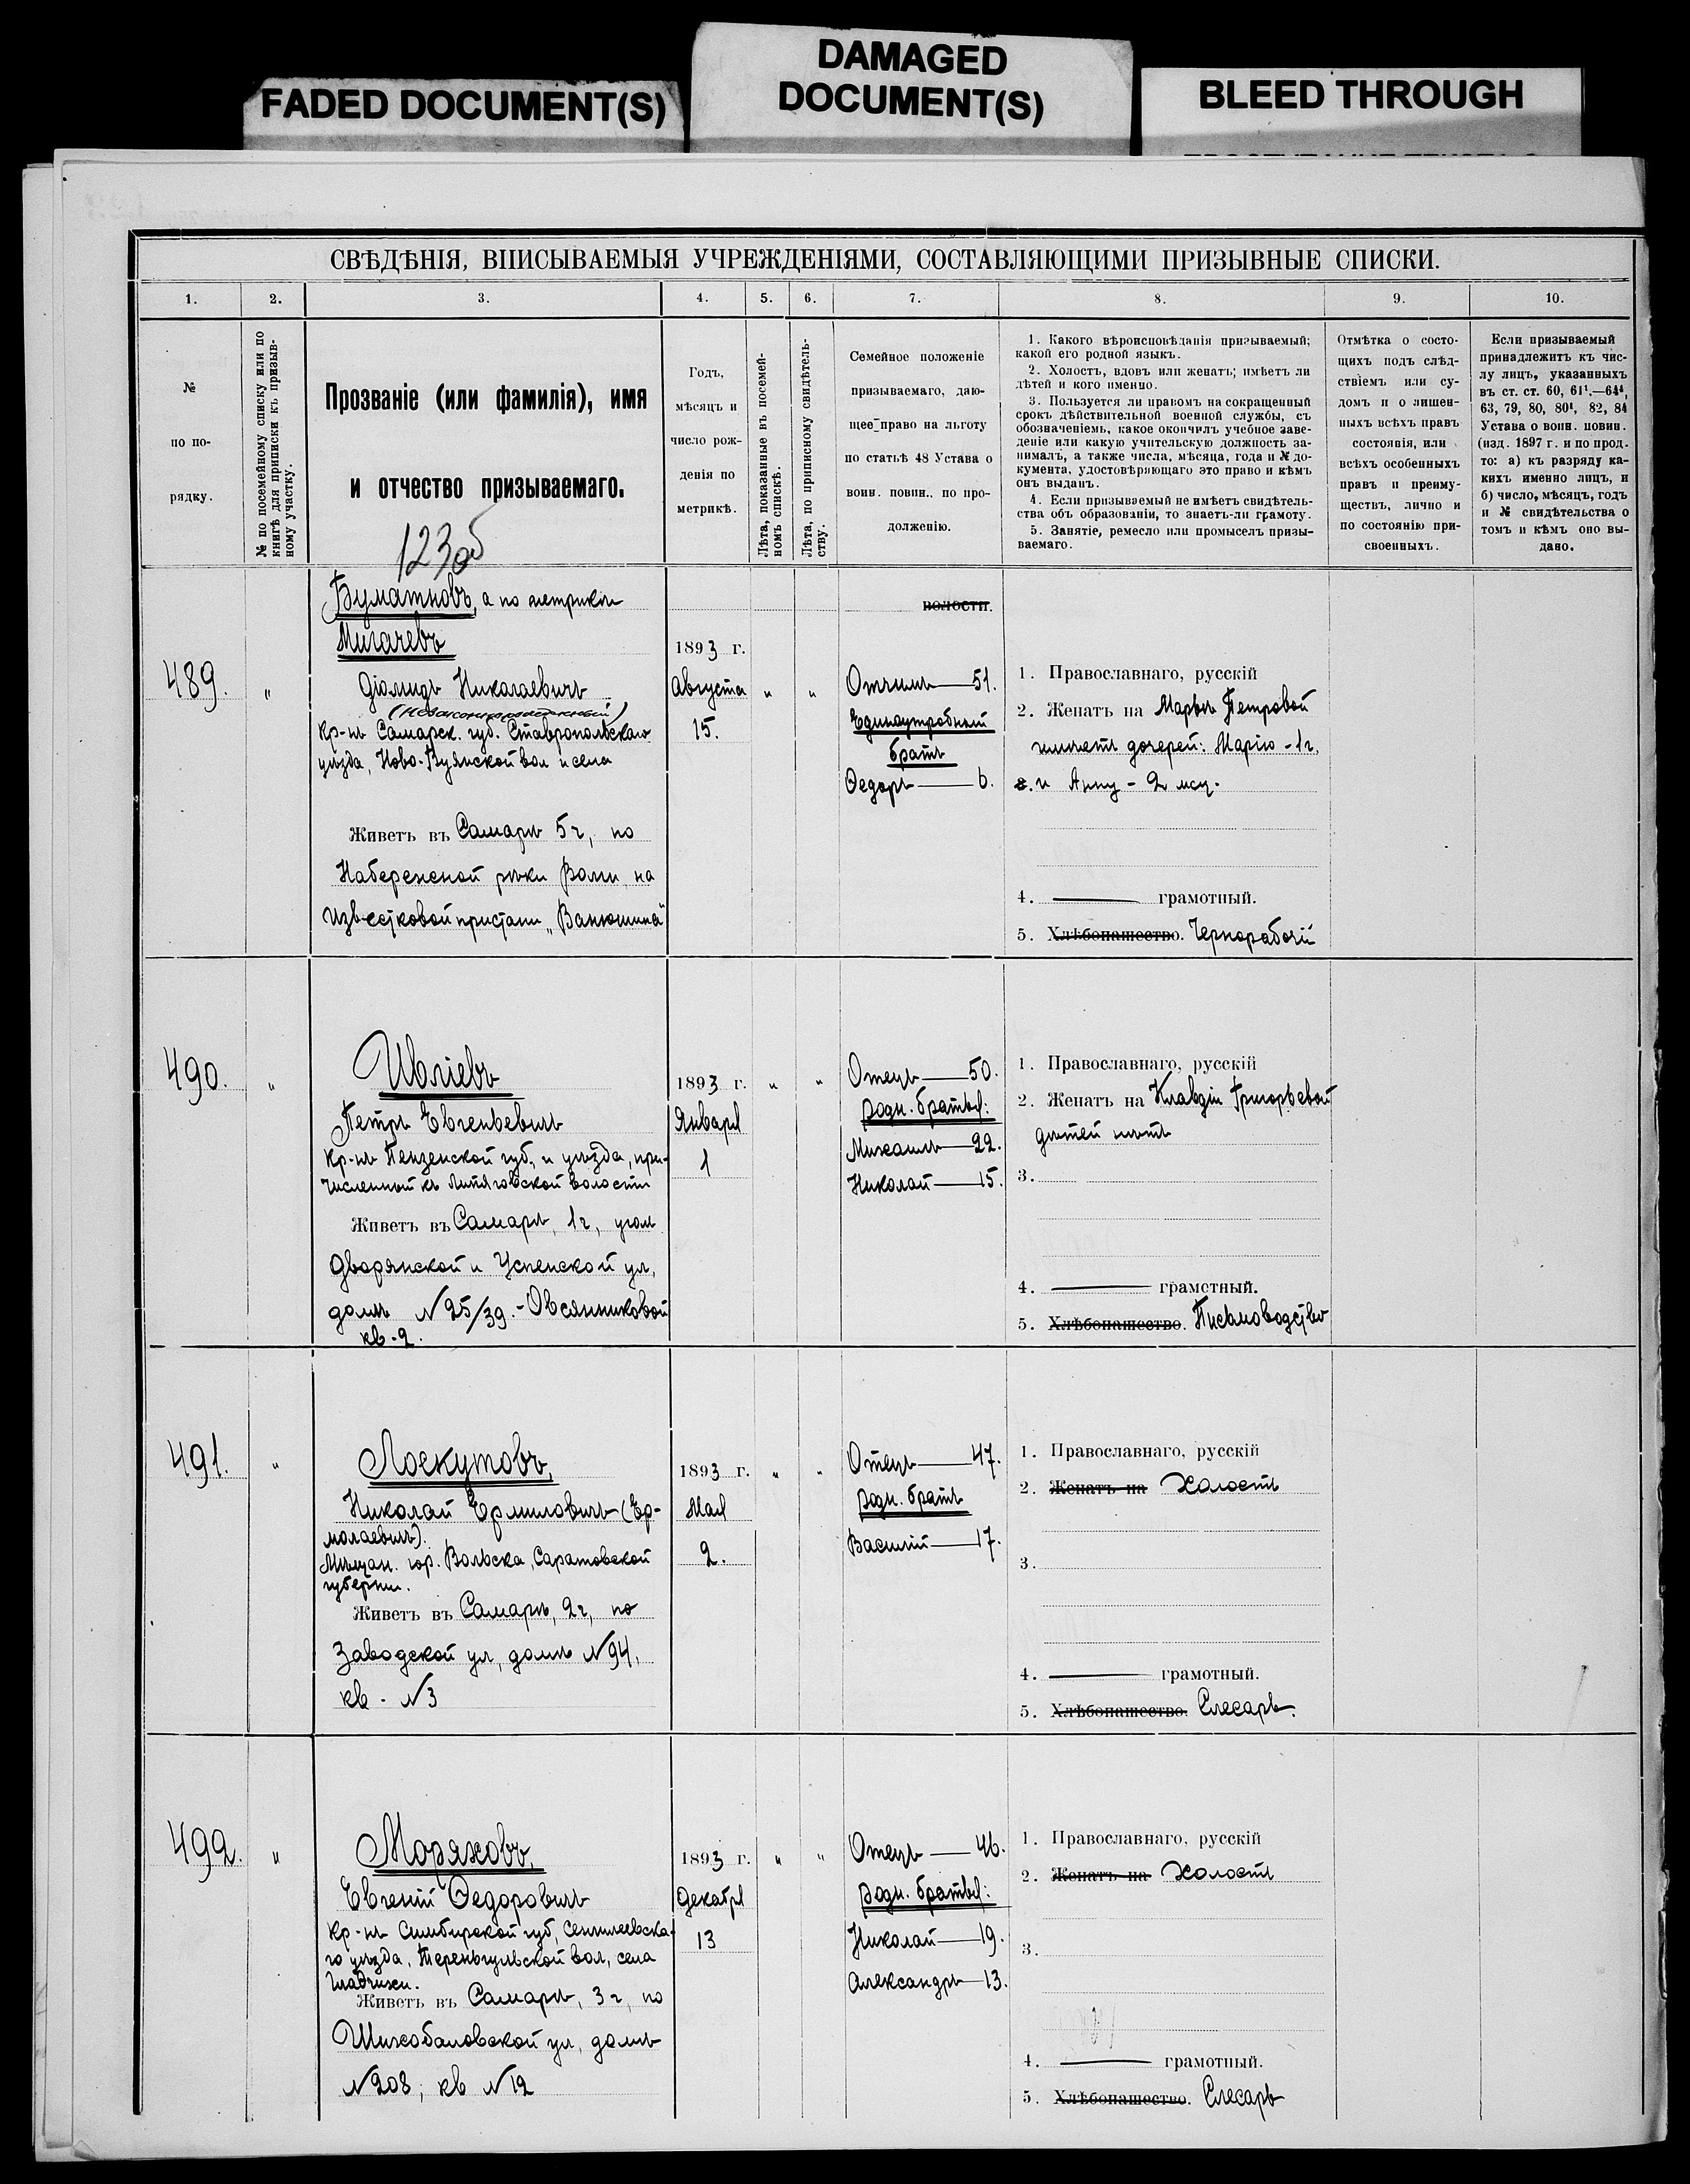 FADED DOCUMENT(S)
DAMAGED
DOCUMENT(S)
BLEED THROUGH
СВѢДѢНІЯ, ВПИСЫВАЕМЫЯ УЧРЕЖДЕНІЯМИ, СОСТАВЛЯЮЩИМИ ПРИЗЫВНЫЕ СПИСКИ.
1.
2.
3.
4.
5.
6.
7.
8.
9.
10.
№
по по-
рядку.
№ по посемейному списку или по
книгѣ для приписки къ призыв-
ному участку.
Прозваніе (или фамилія), имя
и отчество призываемаго.
123об
Годъ,
мѣсяцъ и
число рож-
денія по
метрикѣ.
Лѣта, показанные въ посемей-
номъ спискѣ.
Лѣта, по приписному свидѣтель-
ству.
Семейное положеніе
призываемаго, даю-
щее право на льготу
по статьѣ 48 Устава о
воин. повин.. по про-
долженію.
1. Какого вѣроисповѣданія призываемый;
какой его родной языкъ.
2. Холостъ, вдовъ или женатъ; имѣетъ ли
дѣтей и кого именно.
3. Пользуется ли правомъ на сокращенный
срокъ дѣйствительной военной службы, съ
обозначеніемъ, какое окончилъ учебное заве-
деніе или какую учительскую должность за-
нималъ, а также числа, мѣсяца, года и № до-
кумента, удостовѣряющаго это право и кѣмъ
онъ выданъ.
4. Если призываемый не имѣетъ свидѣтель-
ства объ образованіи, то знаетъ-ли грамоту.
5. Занятіе, ремесло или промыселъ призы-
ваемаго.
Отмѣтка о состо-
щихъ подъ слѣд-
ствіемъ или су-
домъ и о лишен-
ныхъ всѣхъ правъ
состоянія, или
всѣхъ особенныхъ
правъ и преиму-
ществъ, лично и
по состоянію при-
своенныхъ.
Если призываемый
принадлежитъ къ чис-
лу лицъ, указанныхъ
въ ст. ст. 60, 61¹.—64⁴,
63, 79, 80, 80¹, 82, 84
Устава о воин. повин.
(изд. 1897 г. и по прод.
то: а) къ разряду ка-
кихъ именно лицъ, и
б) число, мѣсяцъ, годъ
и № свидѣтельства о
томъ и кѣмъ оно вы-
дано.
489.
"
Буматновъ, а по метрикѣ
Мигачевъ
Діомидъ Николаевичъ
(Незаконнорожденный)
Кр-нъ Самарск. губ. Ставропольскаго
уѣзда, Ново-Буянской вол и села
Живетъ въ Самарѣ 5 г, по
Набережной рѣки Волги, на
известковой пристани „Ванюшина"
1893 г.
Августа
15.
"
"
волости.
Отчимъ—51.
Единоутробный
братъ
Ѳедоръ—6.
1. Православнаго, русскій
2. Женатъ на Марьѣ Петровой
имѣетъ дочерей: Марію - 1 г.
3. и Анну - 2 мѣс.
4. — грамотный.
5. Хлѣбопашество. Чернорабочій
490.
"
Ивліевъ
Петръ Евгеньевичъ
Кр-нъ Пензенской губ. и уѣзда, при-
численный къ волости
Живетъ въ Самарѣ, 1 г, уголъ
Дворянской и Успенской ул,
домъ № 25/39. - Овсянниковой
кв. 2.
1893 г.
Января
1
"
"
Отецъ—50.
Родн. братья:
Михаилъ—22.
Николай—15.
1. Православнаго, русскій
2. Женатъ на Клавдіи Григорьевой
дѣтей нѣтъ
3.
4. — грамотный.
5. Хлѣбопашество. Письмоводство
491.
"
Лоскутовъ,
Николай Ермиловичъ (Ер-
молаевичъ).
Мѣщан. гор. Вольска, Саратовской
губерніи.
Живетъ въ Самарѣ, 2 г, по
Заводской ул, домъ № 94,
кв. № 3
1893 г.
Мая
2.
"
"
Отецъ—47.
Родн. братъ
Василій—17.
1. Православнаго, русскій
2. Женатъ на Холостъ
3.
4. — грамотный.
5. Хлѣбопашество. Слесарь.
492.
"
Моряховъ,
Евгеній Ѳедоровичъ
Кр-нъ Симбирской губ, Сенгилеевска-
го уѣзда, Тереньгульской вол, села
Гладчихи.
Живетъ въ Самарѣ, 3 г, по
Шихобаловской ул, домъ
№ 208, кв № 12
1893 г.
Декабря
13
"
"
Отецъ—46.
Родн. братья:
Николай—19.
Александръ—13.
1. Православнаго, русскій
2. Женатъ на Холостъ
3.
4. — грамотный.
5. Хлѣбопашество. Слесарь